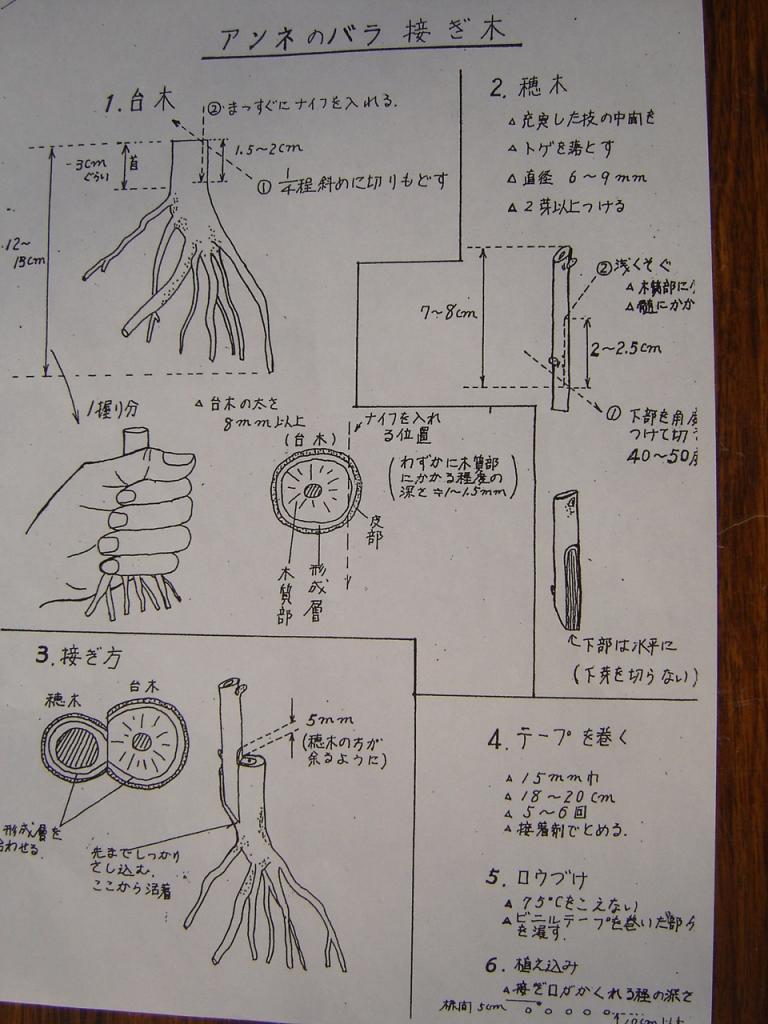 アンネのバラ 接ぎ木
1. 台木
②まっすぐにナイフを入れる.
1.5~2cm
3cm
ぐらい
首
① 1/4程斜めに切りもどす
12~
13cm
1握り分
△ 台木の太さ
8mm以上
(台木)
ナイフを入れ
る位置
(わずかに木質部
にかかる程度の
深さ≒1~1.5mm)
皮部
木質部
形成層
2. 穂木
△ 充実した枝の中間を
△ トゲを落とす
△ 直径 6~9mm
△ 2芽以上つける
7~8cm
②浅くそぐ
△ 木質部に
△ 髄にかか
2~2.5cm
① 下部を角度
つけて切
40~50度
下部は水平に
(下芽を切らない)
3. 接ぎ方
穂木
台木
5mm
(穂木の方が
余るように)
形成層を
合わせる.
先までしっかり
さし込む.
ここから活着
4. テープを巻く
△ 15mm巾
△ 18~20cm
△ 5~6回
△ 接着剤でとめる.
5. ロウづけ
△ 75°Cをこえない
△ ビニルテープを巻いた部分
を浸す.
6. 植え込み
△接ぎ口がかくれる程の深さ
株間 5cm
10cm以上